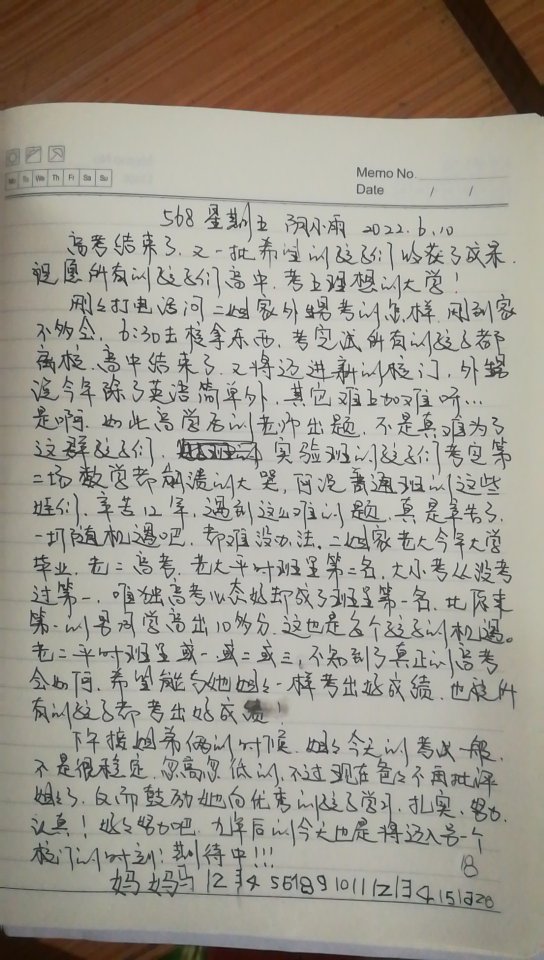 Mo Tu We Th Fr Sa Su
Memo No.
Date / /
568 星期五 阴小雨 2022.6.10
高考结束了,又一批希望的孩子们收获了成果.
祝愿所有的孩子们高中,考上理想的大学!
刚刚打电话问二姐家外甥考的怎样,刚到家
不多会,6:30去校拿东西,考完试所有的孩子都
离校,高中结束了,又将迈进新的校门,外甥
说今年除了英语简单外,其它难上加难呀...
是啊,如此高学历的老师出题,不是真难为了
这群孩子们, 实验班的孩子们考完第
二场数学都崩溃的大哭,何况普通班的这些
娃们,辛苦12年,遇到这么难的题,真是辛苦了,
一切随机遇吧,都难没办法,二姐家老大今年大学
毕业,老二高考,老大平时班里第二名,大小考从没考
过第一,唯独高考心态好却成了班里第一名,比原来
第一的男同学高出10多分,这也是每个孩子的机遇。
老二平时班里或一或二或三,不知到了真正的高考
会如何,希望能与她姐姐一样考出好成绩,也祝所
有的孩子都考出好成绩!
下午接姐弟俩的时候,姐姐今天的考试一般,
不是很稳定,忽高忽低的,不过现在爸爸不再批评
姐姐了,反而鼓励她向优秀的孩子学习,扎实、努力、
认真!好好努力吧,九年后的今天也是将迈入另一个
校门的时刻:期待中!!!
18
妈妈马 12 3 4 5 6 7 8 9 10 11 12 13 4 15 1 2 20